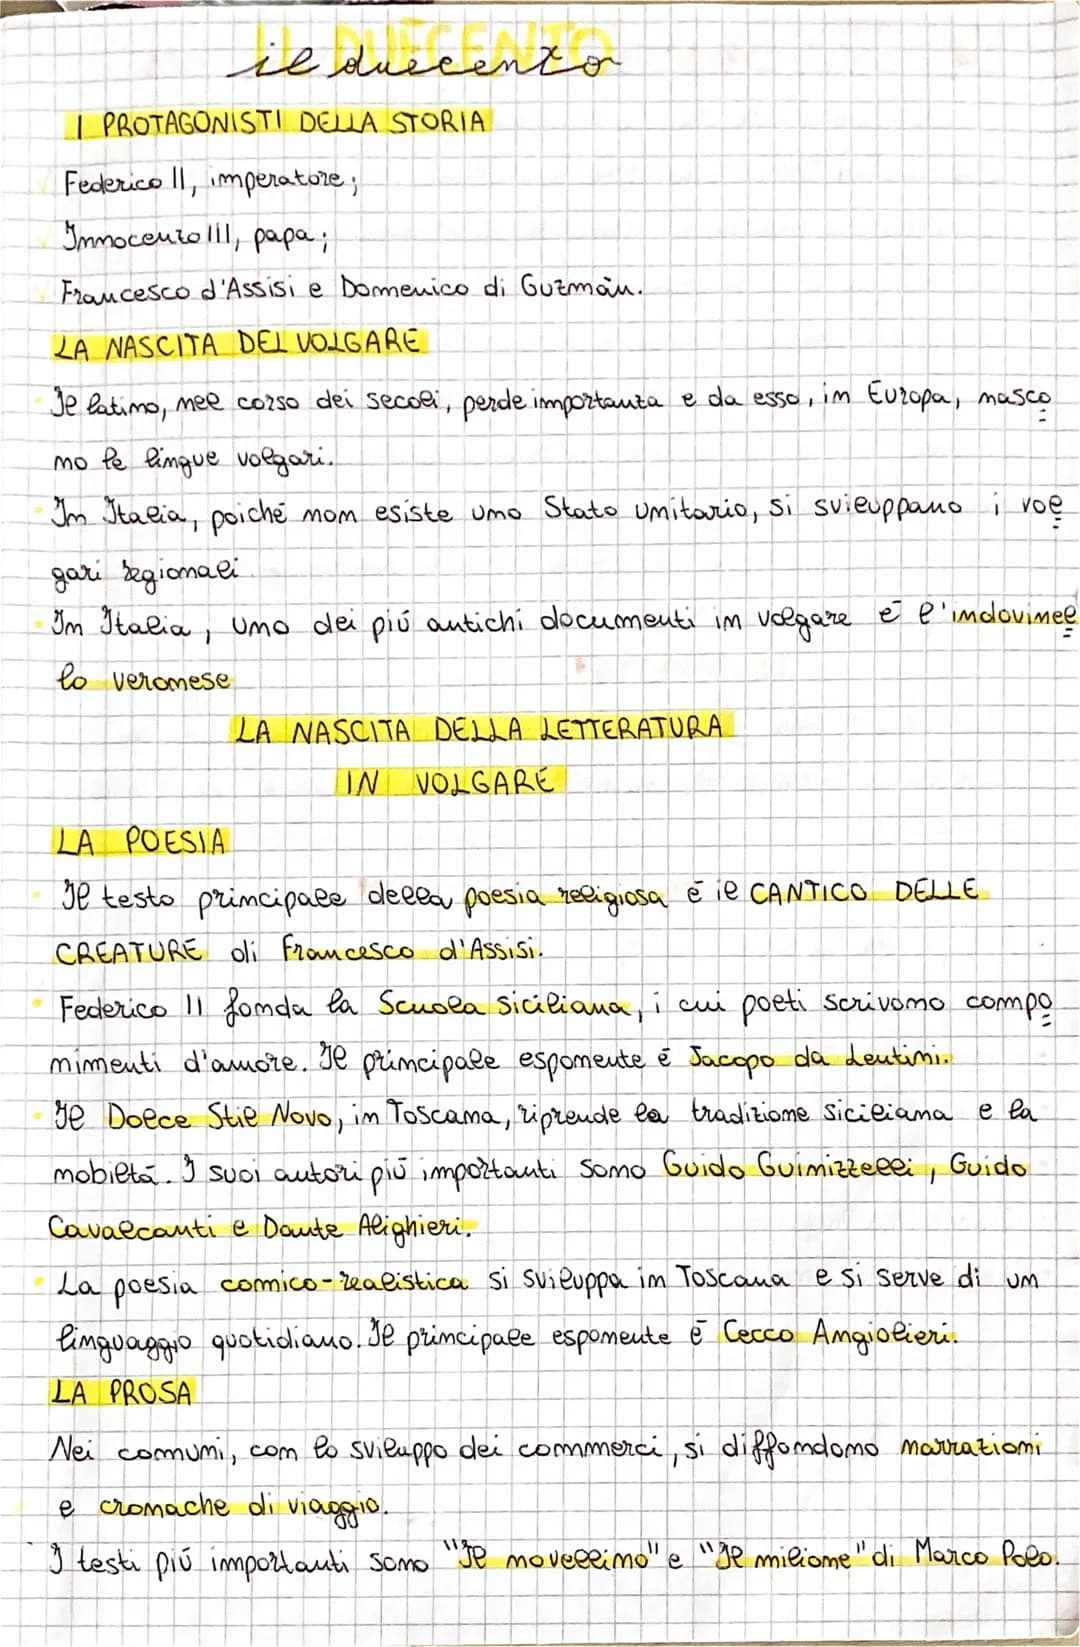 IL DUECENTO
il duecento
I PROTAGONISTI DELLA STORIA
Federico II, imperatore;
Innocenzo III, papa;
Francesco d'Assisi e Domenico di Guzmàn.
LA NASCITA DEL VOLGARE
Il latino, nel corso dei secoli, perde importanza e da esso, in Europa, nasco
no le lingue volgari.
In Italia, poiché non esiste uno Stato unitario, si sviluppano i vol
gari regionali.
In Italia, uno dei più antichi documenti in volgare è l'indovinel
lo veronese
LA NASCITA DELLA LETTERATURA
IN VOLGARE
LA POESIA
Il testo principale della poesia religiosa è il CANTICO DELLE
CREATURE di Francesco d'Assisi.
Federico II fonda la Scuola Siciliana, i cui poeti scrivono compo
nimenti d'amore. Il principale esponente è Jacopo da Lentini.
Il Dolce Stil Novo, in Toscana, riprende la tradizione siciliana e la
nobiltà. I suoi autori più importanti sono Guido Guinizzelli, Guido
Cavalcanti e Dante Alighieri.
La poesia comico-realistica si sviluppa in Toscana e si serve di un
linguaggio quotidiano. Il principale esponente è Cecco Angiolieri.
LA PROSA
Nei comuni, con lo sviluppo dei commerci, si diffondono narrazioni
e cronache di viaggio.
I testi più importanti sono "Il novellino" e "Il milione" di Marco Polo.